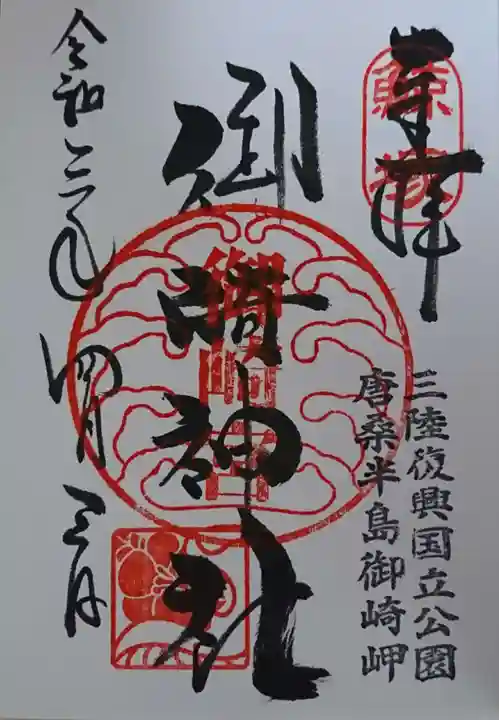 奉拝
鯨塚
三陸復興国立公園
唐桑半島御崎岬
御崎神社
御崎宮
令和三年四月三日